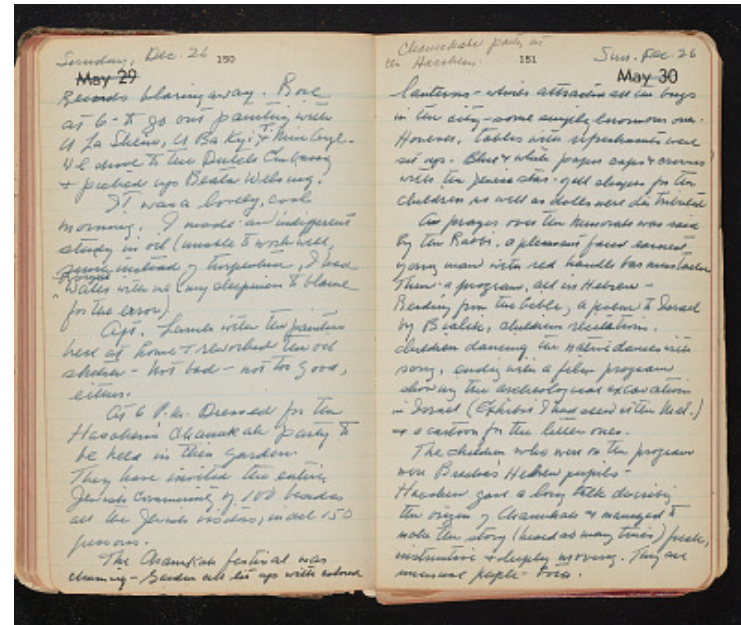 Sunday, Dec. 26 150
May 29
Records blaring away. Rose
at 6 - to go out painting with
U La Shein, U Ba Kyi &
We drove to the Dutch Embassy
+ picked up Beata
It was a lovely, cool
morning. I made an indifferent
study in oil (unable to work well,
instead of turpentine, I had
water with me (my to blame
for the error)
Aft. Lunch with the painters
here at home + reworked the oil
sketch - not bad - not too good,
either.
At 6 P.M. Dressed for the
Hacohen's Chanukah party to
be held in their garden.
They have invited the entire
Jewish community of 100 besides
all the Jewish visitors, in all 150
persons.
The Chanukah festival was
charming - Garden all lit up with colored
Chanukah party at
the Hacohens. 151 Sun. Dec. 26
May 30
lanterns - which attracted all the bugs
in the city - some simply enormous ones.
However, tables with refreshments were
set up. Blue + white paper caps + crowns
with the Jewish star - of all shapes for the
children as well as dolls were distributed
A prayer over the Menorah was said
by the Rabbi, a pleasant faced earnest
young man with red handle bar mustache
Then - a program, all in Hebrew -
Reading from the bible, a poem to Israel
by Bialik, children recitation,
children dancing the native dances with
song, ending with a film program
showing the archeological excavations
in Israel (Exhibit I had seen at the Met.)
+ a cartoon for the little ones.
The children who were on the program
were Hebrew pupils -
Hacohen gave a long talk describing
the origin of Chanukah + managed to
make the story (heard so many times) fresh,
instructive + deeply moving. They are
people - both.